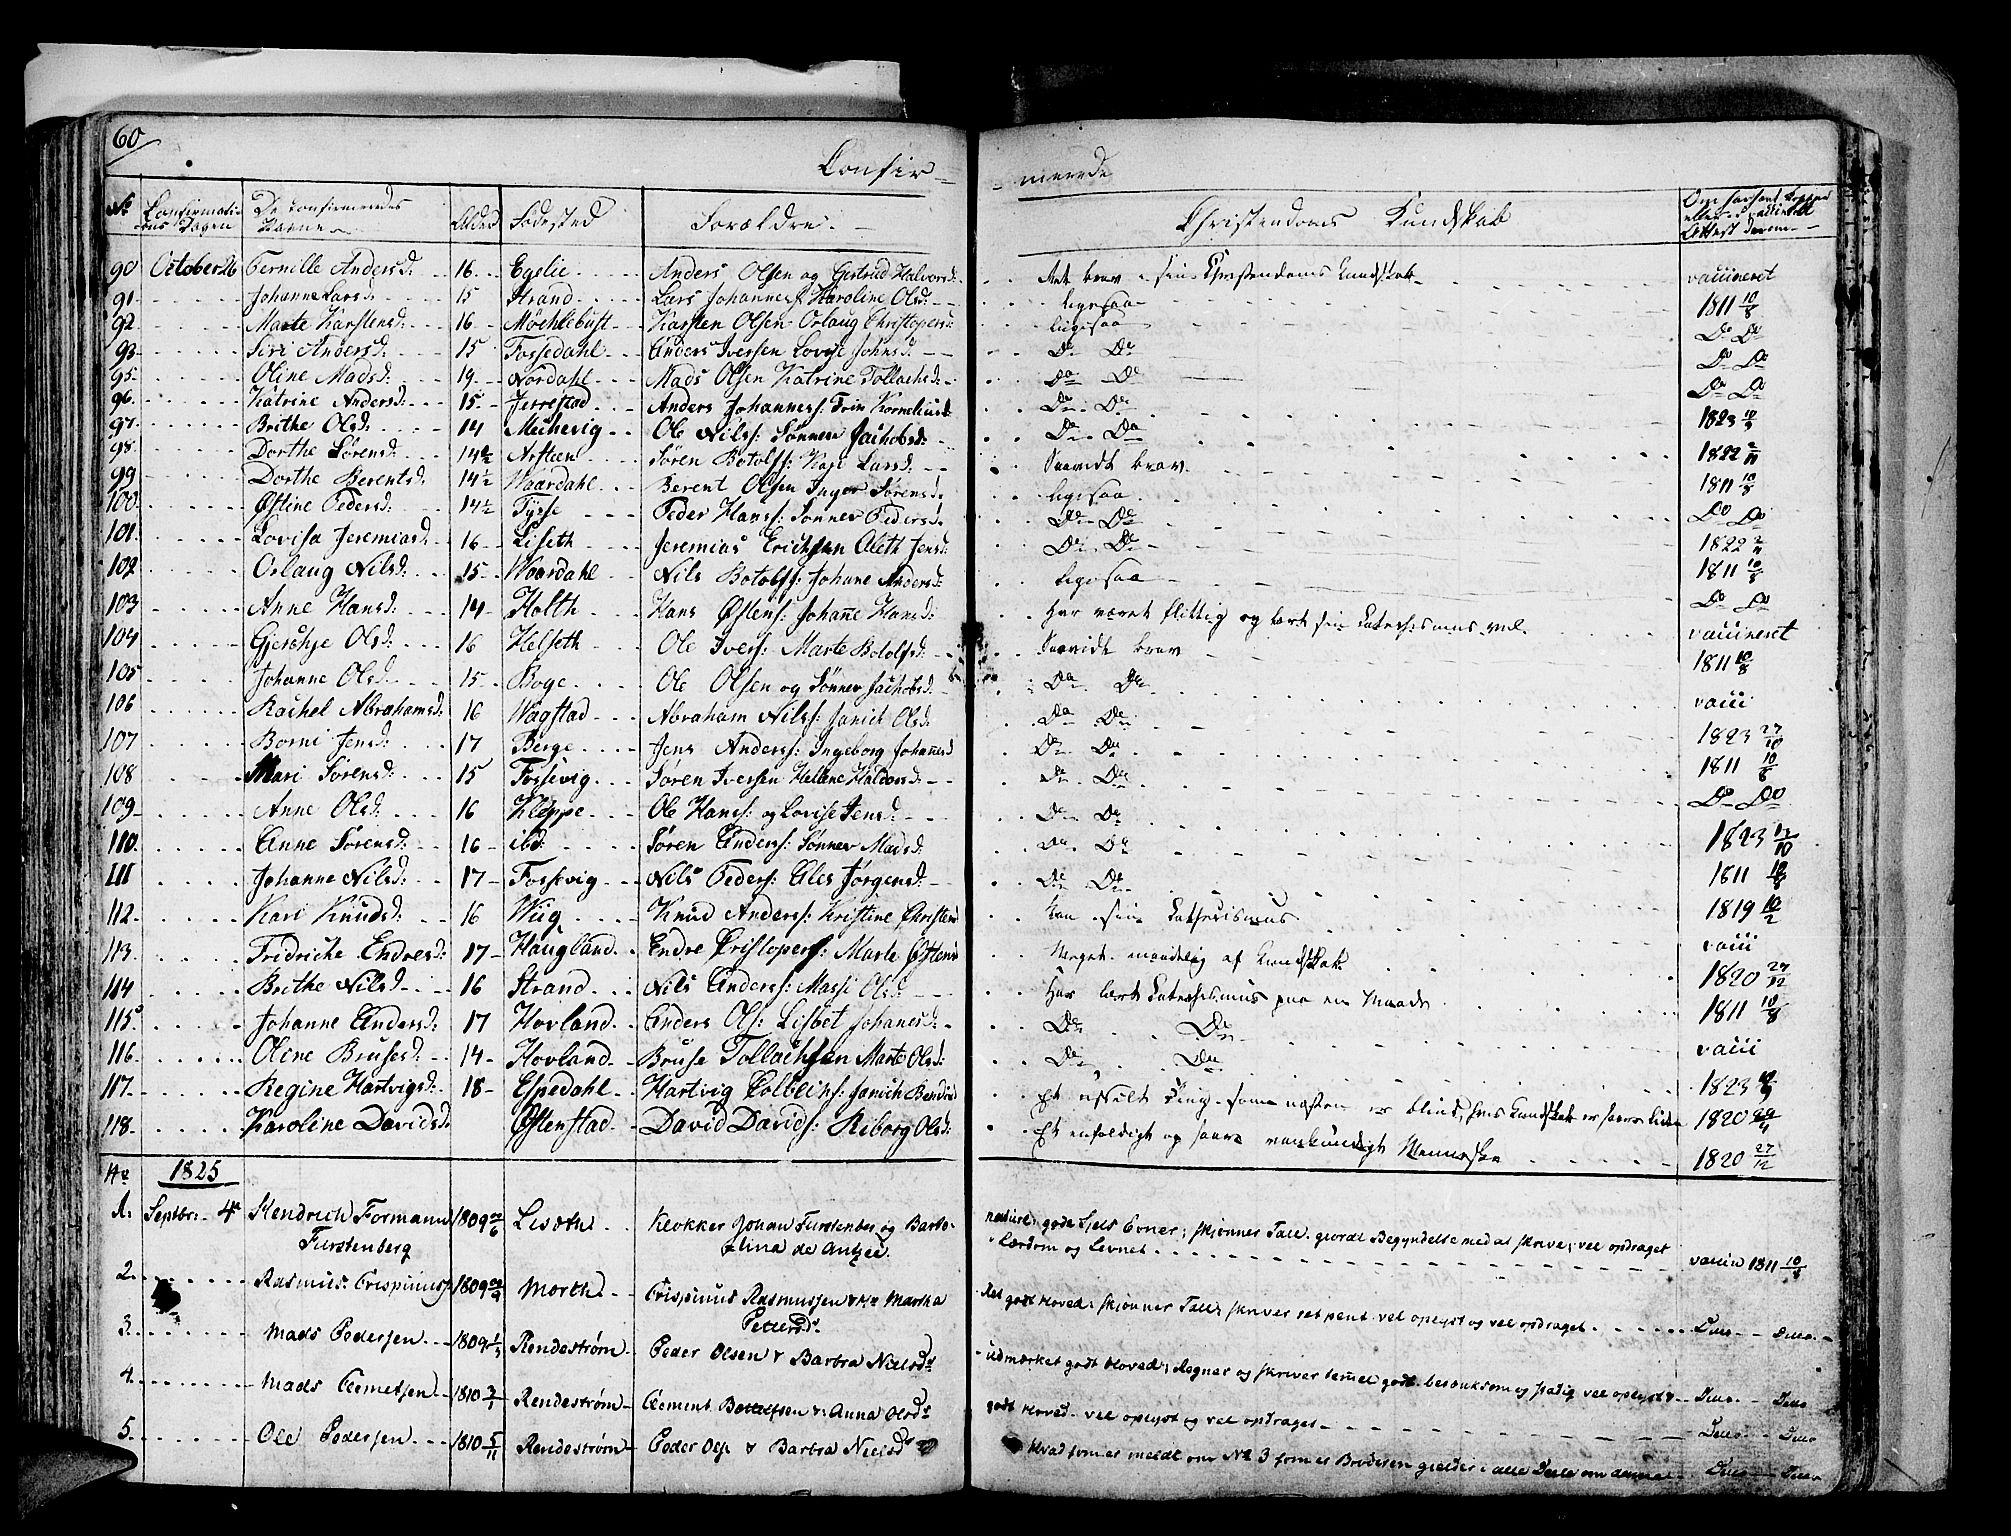 60
Confir- -merede
No Confirmations Dagen De Confirmeredes Navne Alder Fødested Forældre. Christendoms Kundskab
90 October 26 Pernille Andersd: 16 Egelie Anders Olsen og Gertrud Halvorsd: vaccineret
91 Johanne Larsd: 15 Strand Lars Johannes: Karoline Olsd: ligesaa 1811 10/8
92 Marte Karstensd: 16 Møchlebust Karsten Olsen Orlaug Christophersd: ligesaa Do Do
93 Siri Andersd: 15 Fossedahl Anders Iversen Lovise Johnsd: Do Do Do Do
95 Oline Madsd: 19 Nordahl Mads Olsen Katrine Tollachsd: Do Do Do Do
96 Katrine Andersd: 15 Jerrestad Anders Johanness: Trin Korneliusd: Do Do
97 Brithe Olsd: 14 Michevig Ole Nilss: Sønnev Jachobsd: Do Do
98 Dorthe Sørensd: 14½ Assteen Søren Botolfs: Kari Larsd: Saavidt brav
99 Dorthe Berentsd: 14½ Waardahl Berent Olsen Inger Sørensd: ligesaa 1811 10/8
100 Østine Pedersd: 14½ Tysse Peder Hanss: Sønnev Pedersd: Do Do Do Do
101 Lovisa Jeremiasd: 16 Liseth Jeremias Erichsen Aleth Jensd: Do Do
102 Orlaug Nilsd: 15 Waardahl Nils Botolfs: Johane Andersd: ligesaa 1811 10/8
103 Anne Hansd: 14 Holth Hans Østens: Johanne Hansd: Har været flittig og lært sin Catechismus vel. Do Do
104 Gjerthje Olsd: 16 Helseth Ole Ivers: Marte Botolfsd: Saavidt brav vaccineret
105 Johanne Olsd: 15 Boge Ole Olsen og Sønnev Jachobsd: Do Do 1811 10/8
106 Rachel Abrahamsd: 16 Wagstad Abraham Nilss: Janich Olsd: Do Do vacci
107 Borni Jensd: 17 Berge Jens Anderss: Ingeborg Johannesd Do Do 1823 27/10
108 Mari Sørensd: 15 Fossevig Søren Iversen Helene Haldorsd: Do Do 1811 10/8
109 Anne Olsd: 16 Kleppe Ole Hans: og Lovise Jensd: Do Do Do Do
110 Anne Sørensd: 16 ibd: Søren Anderss: Sønnev Madsd: Do Do 1823
111 Johanne Nilsd: 17 Fossevig Nils Peders: Eles Jørgensd: Do Do 1811 10/8
112 Kari Knudsd: 16 Wiig Knud Anderss: Kristine Christens Kan sin Catechismus 1819 10/2
113 Fridriche Endresd: 17 Haugland Endre Cristopers: Marte Østens Meget maadelig af Kundskab vacci
114 Brithe Nilsd: 16 Strand Nils Anderss: Massi Olsd: Har lært Catechismus paa en Maade 1820 27/12
115 Johanne Andersd: 17 Hovland Anders Ols: Lisbet Johanesd: Do Do 1811 10/8
116 Oline Brusesd: 14 Hovland Bruse Tollachsen Marte Olsd: Do Do vacci
117 Regine Hartvigsd: 18 Espedahl Hartvig Colbeins: Janich Bendixd 1823
118 Karoline Davidsd: Østenstad David Davids: Riborg Olsd: Et enfoldigt og saare vankundigt Menneske 1820 27/12
No 1825
1. Septbr: 4de Hendrich Formann Furstenberg 1809 Lisæth Klokker Johan Furstenberg og Barbo- lina de Antzee. gode Sjels Evner; skjønner Tall. giordt Begyndelse med at skrive; vel opdraget i Lærdom og Levnet vaccin 1811 10/8
2. Rasmus Crispinuss: 1809 Morthe Crispinus Rasmussen & Martha Pettersd. Ret godt Hoved; skjønner Tall; skriver ret pent. vel oplyst og vel opdraget. Ditto Ditto
3. Mads Pedersen 1809 Rendestrøm Peder Olsen & Barbra Nielsdr udmærket godt Hoved; Regner og skriver temmel godt. betænksom og stadig vel oplyst Ditto Ditto
4. Mads Clemetsen 1810 Rendestrøm Clement Botelfsen & Anna Olsdr godt Hoved. vel oplyst og vel opdraget Ditto Ditto
5. Ole Pedersen 1810 5/11 Rendestrøm Peder Ols & Barbra Nielsdr Hvad som er meldt om No 3 som er Broderen gielder i alle Deele om denne Ditto Ditto